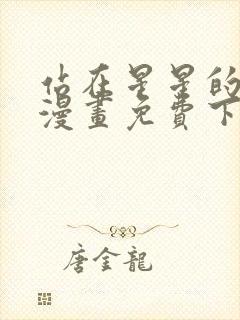 佔在星星的
漫畫免費下
唐金龍